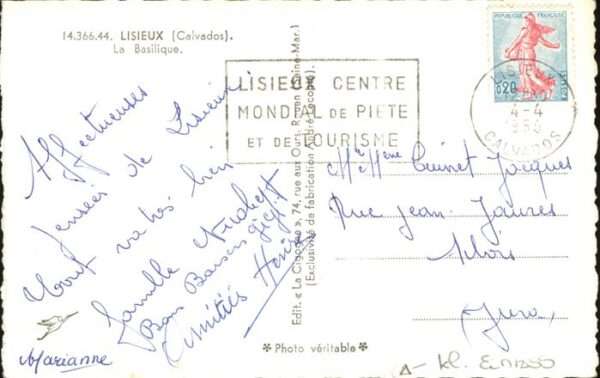 14.366.44. LISIEUX (Calvados).
La Basilique.
REPUBLIQUE FRANÇAISE
0,20
POSTES
LISIEUX
4-4
CALVADOS
LISIEUX CENTRE
MONDIAL DE PIETE
ET DE TOURISME
Affectueuses
pensées de Lisieux
tout va très bien
famille
Bons Baisers
Amitiés
Marianne
Edit. « La Cigogne », 74, rue aux Ours, Rouen (Seine-Mar.)
(Exclusivité de fabrication André Leconte)
Me Mme Jacques
Rue Jean Jaures
Jura
* Photo véritable *